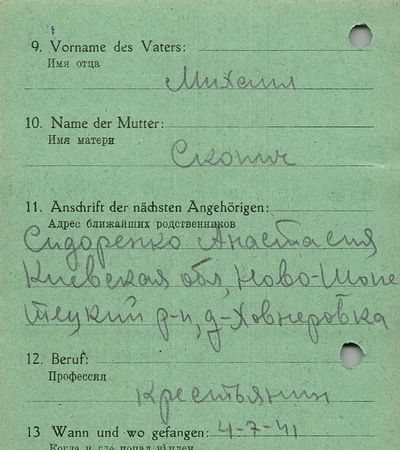 9. Vorname des Vaters:
Имя отца
Михаил
10. Name der Mutter:
Имя матери
Скопич
11. Anschrift der nächsten Angehörigen:
Адрес ближайших родственников
Сидоренко Анастасия
Киевская обл, Ново-Шепе
тецкий р-н, д-Ховнеровка
12. Beruf:
Профессия
Крестьянин
13 Wann und wo gefangen: 4-7-41
Когда и где попал в плен